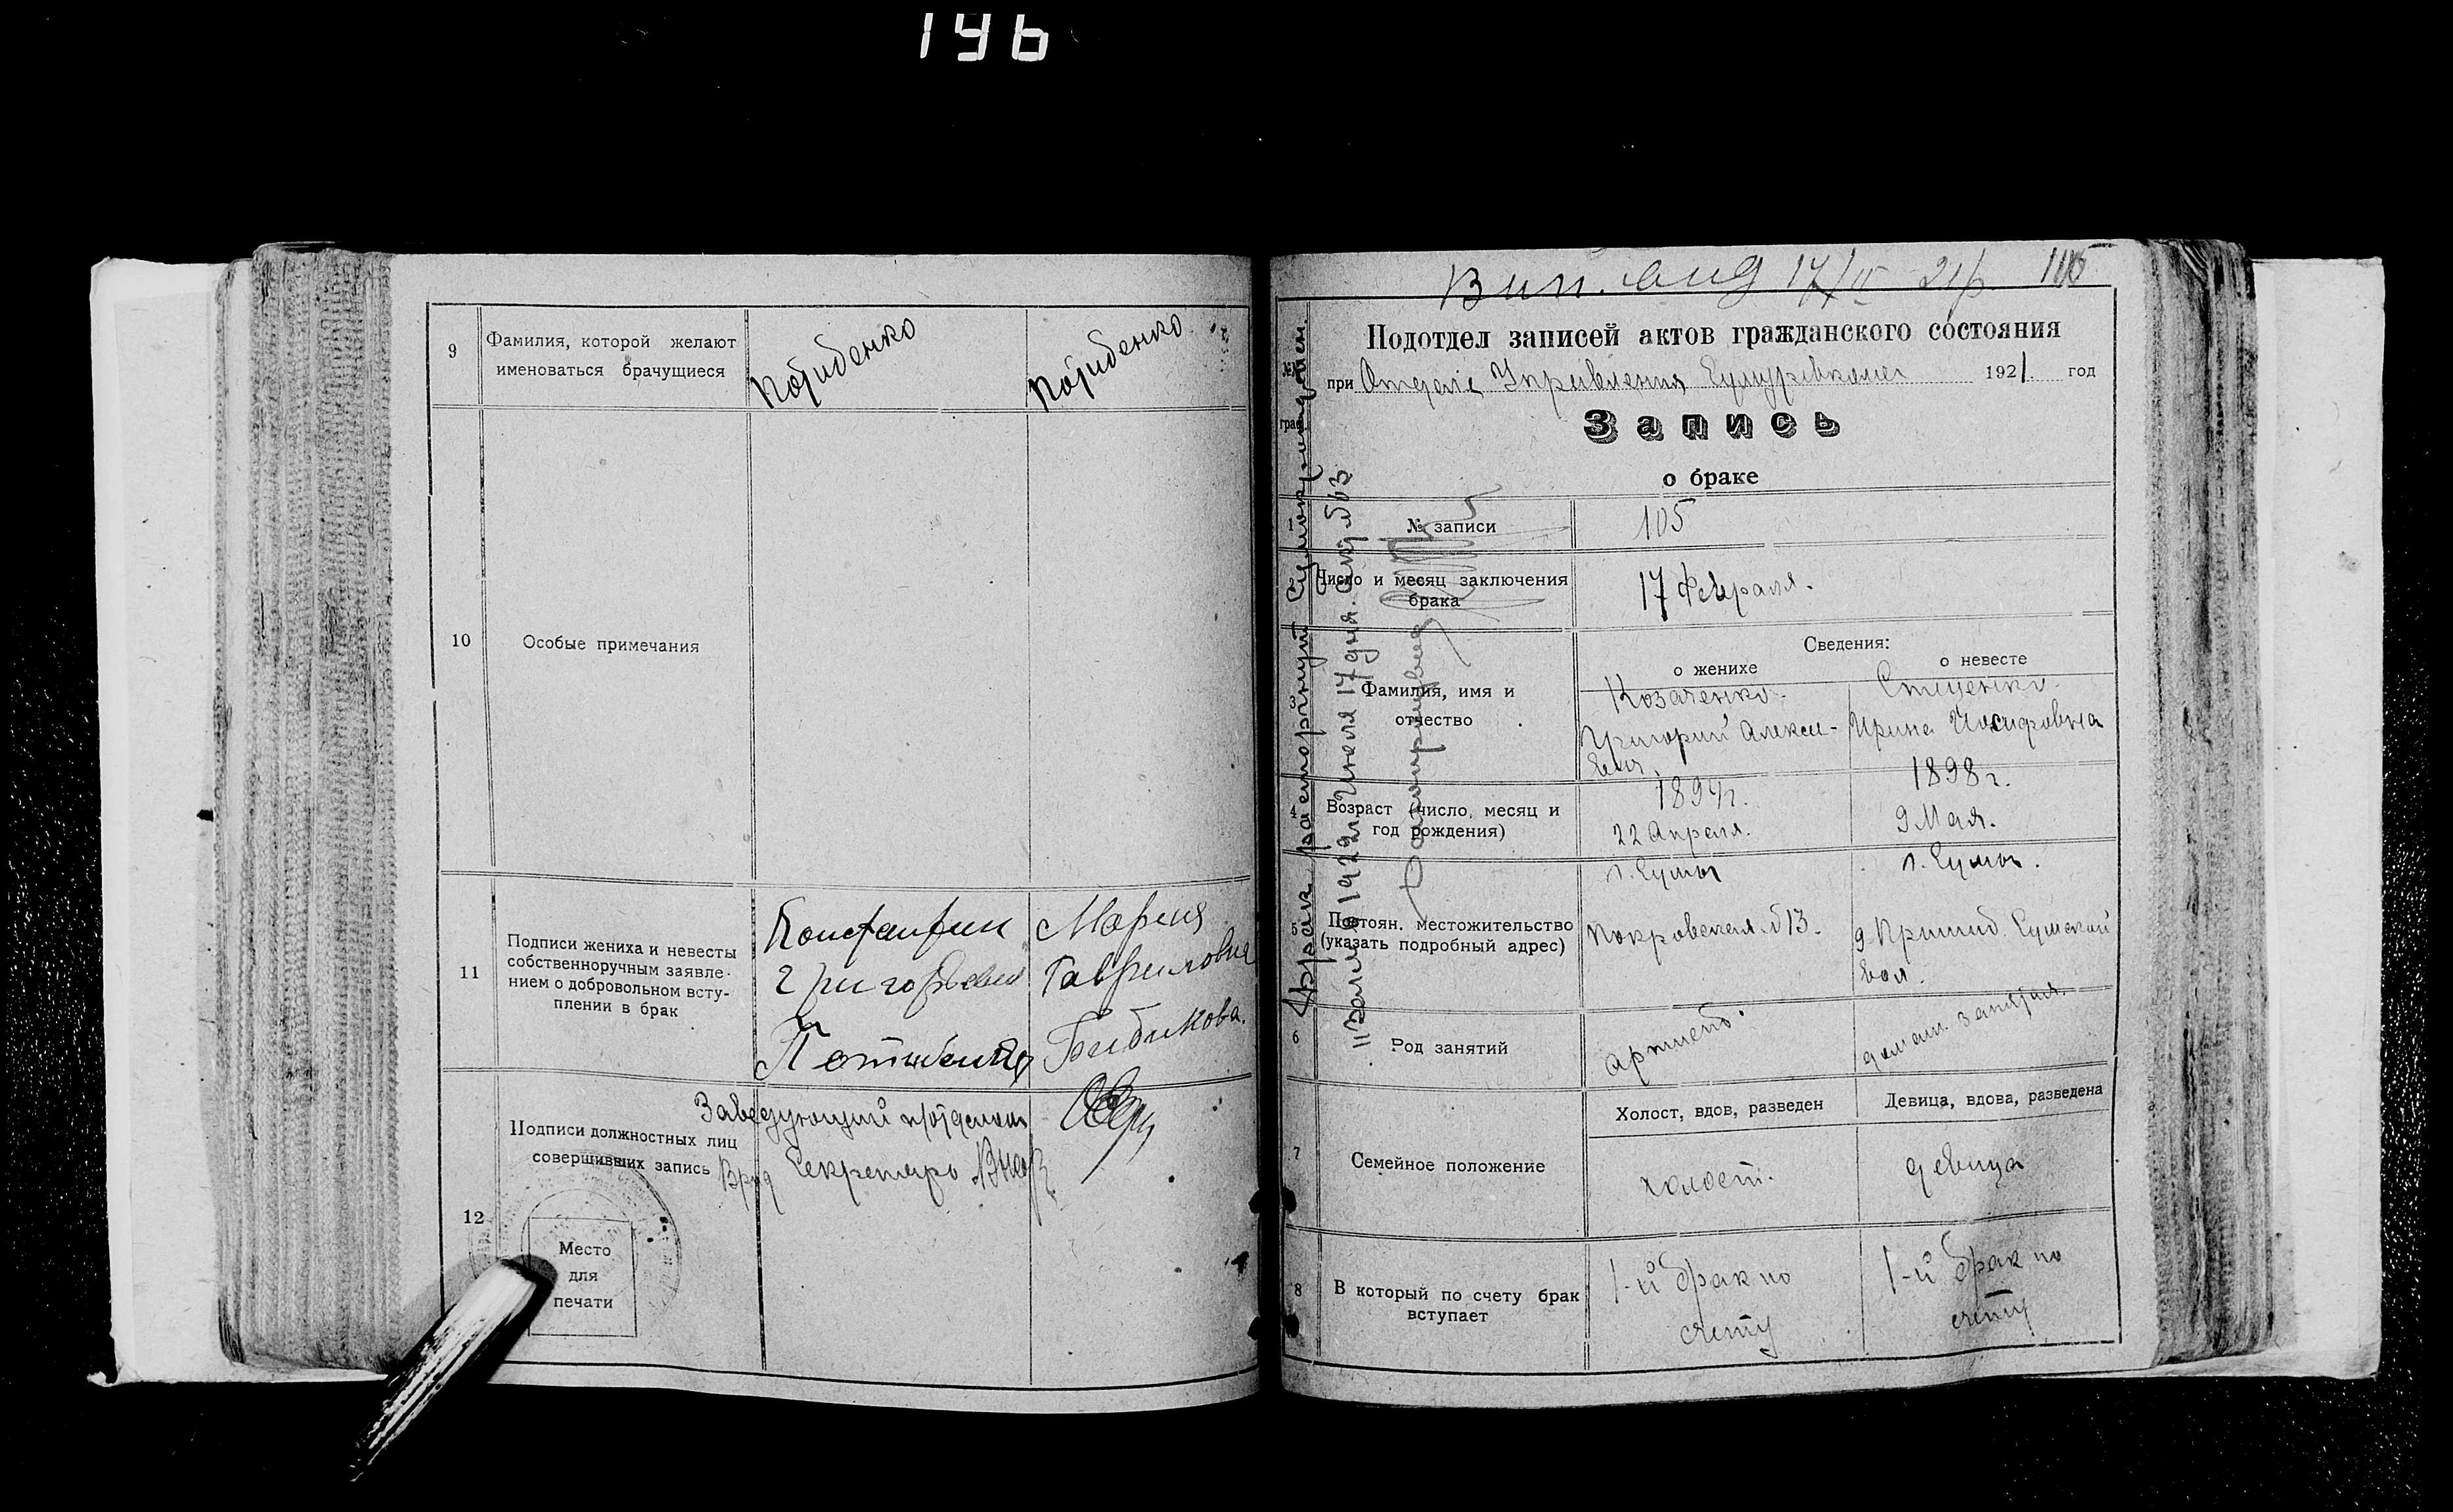 196
9
Фамилия, которой желают
именоваться брачущиеся
10
Особые примечания
11
Подписи жениха и невесты
собственноручным заявле-
нием о добровольном всту-
плении в брак
Константин
Мария
Гавриловна
Бибикова.
Подписи должностных лиц
совершивших запись
Заведующий
Врид Секретарь
12
Место
для
печати
17/II 21 р.
Подотдел записей актов гражданского состояния
при Отделе Управления 1921 год
Запись
о браке
1
№ записи
105
2
Число и месяц заключения
брака
17 Февраля.
Сведения:
о женихе
о невесте
3
Фамилия, имя и
отчество
Козаченко
Григорий Алексе-
евич.
Стиценко
Ирина Иосифовна
4
Возраст (число, месяц и
год рождения)
22 Апреля.
1898 г.
9 Мая.
5
Постоян. местожительство
(указать подробный адрес)
г. Сумы
Покровская №13.
г. Сумы.
Сумской
вол.
6
Род занятий
домаш. занятия.
7
Семейное положение
Холост, вдов, разведен
Девица, вдова, разведена
холост.
девица
8
В который по счету брак
вступает
1-й брак по
счету
1-й брак по
счету
Брак расторгнут
1922 г. Июля 17 дня.